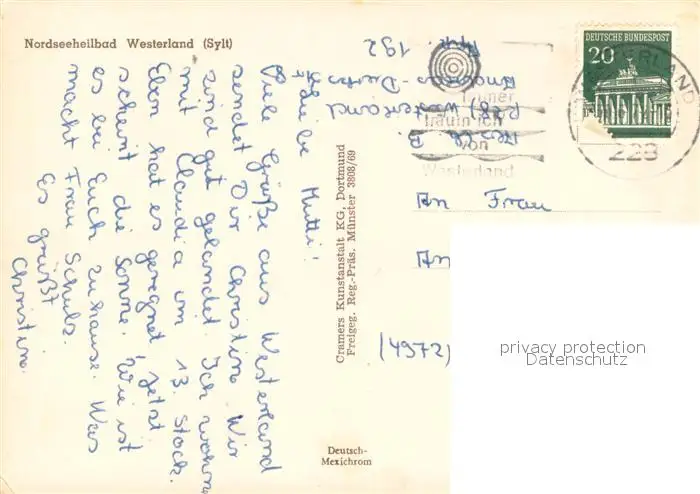 Nordseeheilbad Westerland (Sylt)
Liebe Mutti!
Viele Grüße aus Westerland
sendet Dir Christine. Wir
sind gut gelandet. Ich wohne
mit Claudia im 13. Stock.
Eben hat es geregnet, jetzt
scheint die Sonne. Wie ist
es bei Euch zuhause. Was
macht Frau Schulz.
Es grüßt
Christine.
Cramers Kunstanstalt KG, Dortmund
Freigeg. Reg.-Präs. Münster 3808/69
Deutsch-
Mexichrom
192
Westerland
Immer
träum ich
von
Westerland
DEUTSCHE BUNDESPOST
20
WESTERLAND
228
An Frau
An
(4972)
privacy protection
Datenschutz